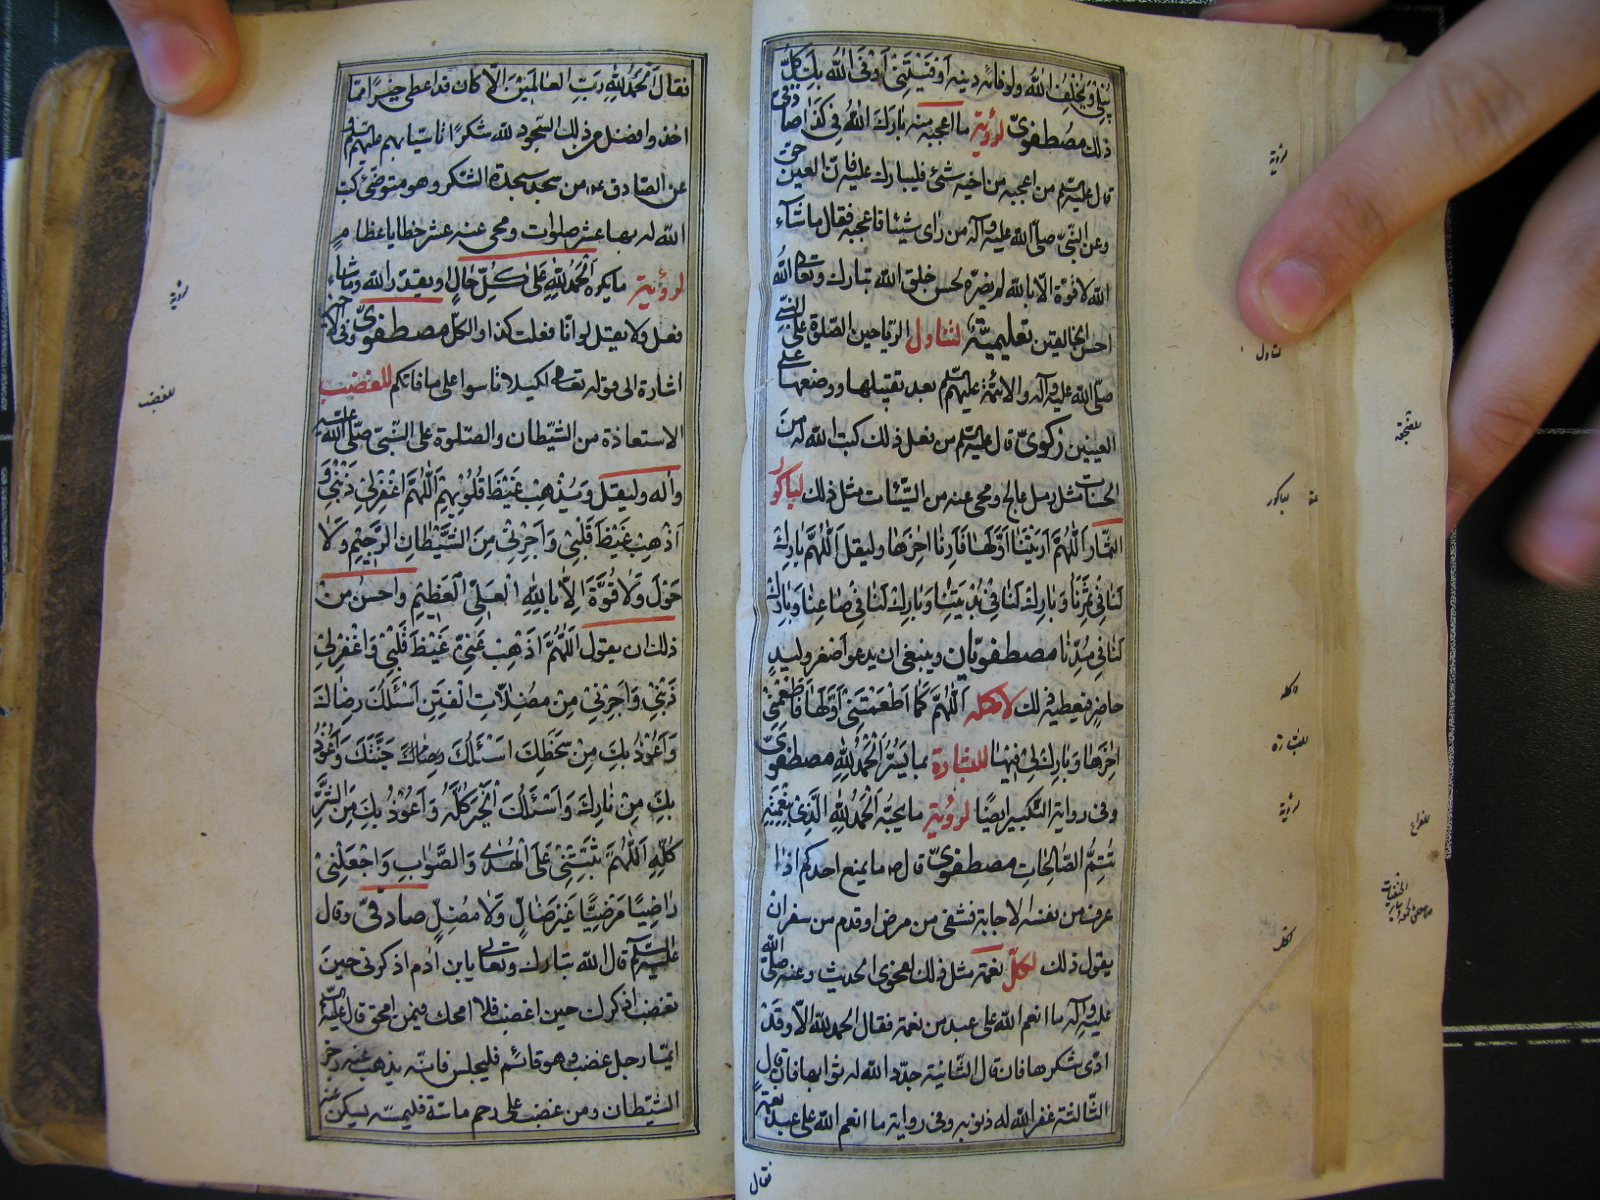 ذلك مصطفوي لرؤية ما اعجبه منه بارك الله في كذا
قال عليه السلم من اعجبه من اخيه شئ فليبارك عليه فان العين حق
وعن النبي صلى الله عليه وآله من راى شيئا فاعجبه فقال ما شآء
الله لا قوة الا بالله لم يضره لحسن خلق الله تبارك وتعالى الله
احسن الخالقين تعليمية لتناول الرياحين الصلوة على النبي
صلى الله عليه وآله والائمة عليهم السلم بعد تقبيلها ووضعها على
العينين زكوي قال عليه السلم من فعل ذلك كتب الله له من
الحسنات مثل رمل عالج ومحى عنه من السيئات مثل ذلك لباكورة
الثمار اللهم اريتنا اولها فارنا اخرها وليقل اللهم بارك
لنا في ثمرنا وبارك لنا في مدينتنا وبارك لنا في صاعنا وبارك
لنا في مدنا مصطفويان وينبغي ان يدعو اصغر وليد
حاضر فيعطيه ذلك لاكله اللهم كما اطعمتني اولها فاطعمني
اخرها وبارك لي فيها للبشارة بما يسر الحمد لله مصطفوي
وفي رواية التكبير ايضا لرؤية ما يحبه الحمد لله الذي بنعمته
تتم الصالحات مصطفوي قال ص ما يمنع احدكم اذا
عرف من نفسه الاجابة فشفي من مرض او قدم من سفر ان
يقول ذلك لكل نعمة مثل ذلك الحديث وعنه صلى الله
عليه وآله ما انعم الله على عبد من نعمة فقال الحمد لله الا وقد
ادى شكرها فان قال الثانية جدد الله له ثوابها فان قال
الثالثة غفر الله له ذنوبه وفي رواية ما انعم الله على عبد نعمة
فقال
فقال الحمد لله رب العالمين الا كان قد اعطي خيرا مما
اخذ وافضل من ذلك السجود لله شكرا تاسيا بهم عليهم السلم
عن الصادق ع من سجد سجدة الشكر وهو متوضئ كتب
الله له بها عشر صلوات ومحى عنه عشر خطايا عظام
لرؤية ما يكره الحمد لله على كل حال او بقدر الله وما شاء
فعل ولا يقل لو انا فعلت كذا والكل مصطفوي وفي الاخير
اشارة الى قوله تعالى لكيلا تاسوا على ما فاتكم للغضب
الاستعاذة من الشيطان والصلوة على النبي صلى الله عليه
وآله وليقل ويذهب غيظ قلوبهم اللهم اغفر لي ذنبي و
اذهب غيظ قلبي واجرني من الشيطان الرجيم ولا
حول ولا قوة الا بالله العلي العظيم واحسن من
ذلك ان يقول اللهم اذهب عني غيظ قلبي واغفر لي
ذنبي واجرني من مضلات الفتن اسئلك رضاك
واعوذ بك من سخطك اسئلك جنتك واعوذ
بك من نارك واسئلك الخير كله واعوذ بك من الشر
كله اللهم ثبتني على الهدى والصواب واجعلني
راضيا مرضيا غير ضال ولا مضل صادقي وقال
عليه السلم قال الله تبارك وتعالى يابن ادم اذكرني حين
تغضب اذكرك حين اغضب فلا امحك فيمن امحق قال عليه السلم
ايما رجل غضب وهو قائم فليجلس فانه يذهب عنه رجز
الشيطان ومن غضب على رحم ماسة فليمسه يسكن عنه
لرؤية
للغضب
لرؤية
لتناول
لباكورة
لاكله
للبشارة
لرؤية
لكل